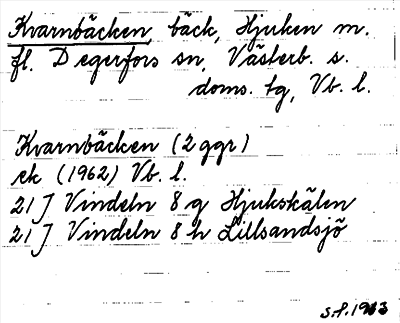 Kvarnbäcken, bäck, Hjuken m.
fl. Degerfors sn, Västerb. s.
doms. tg, Vb. l.
Kvarnbäcken (2 ggr)
ek (1962) Vb. l.
21 J Vindeln 8 g Hjukskälen
21 J Vindeln 8 h Lillsandsjö
S.P. 1963